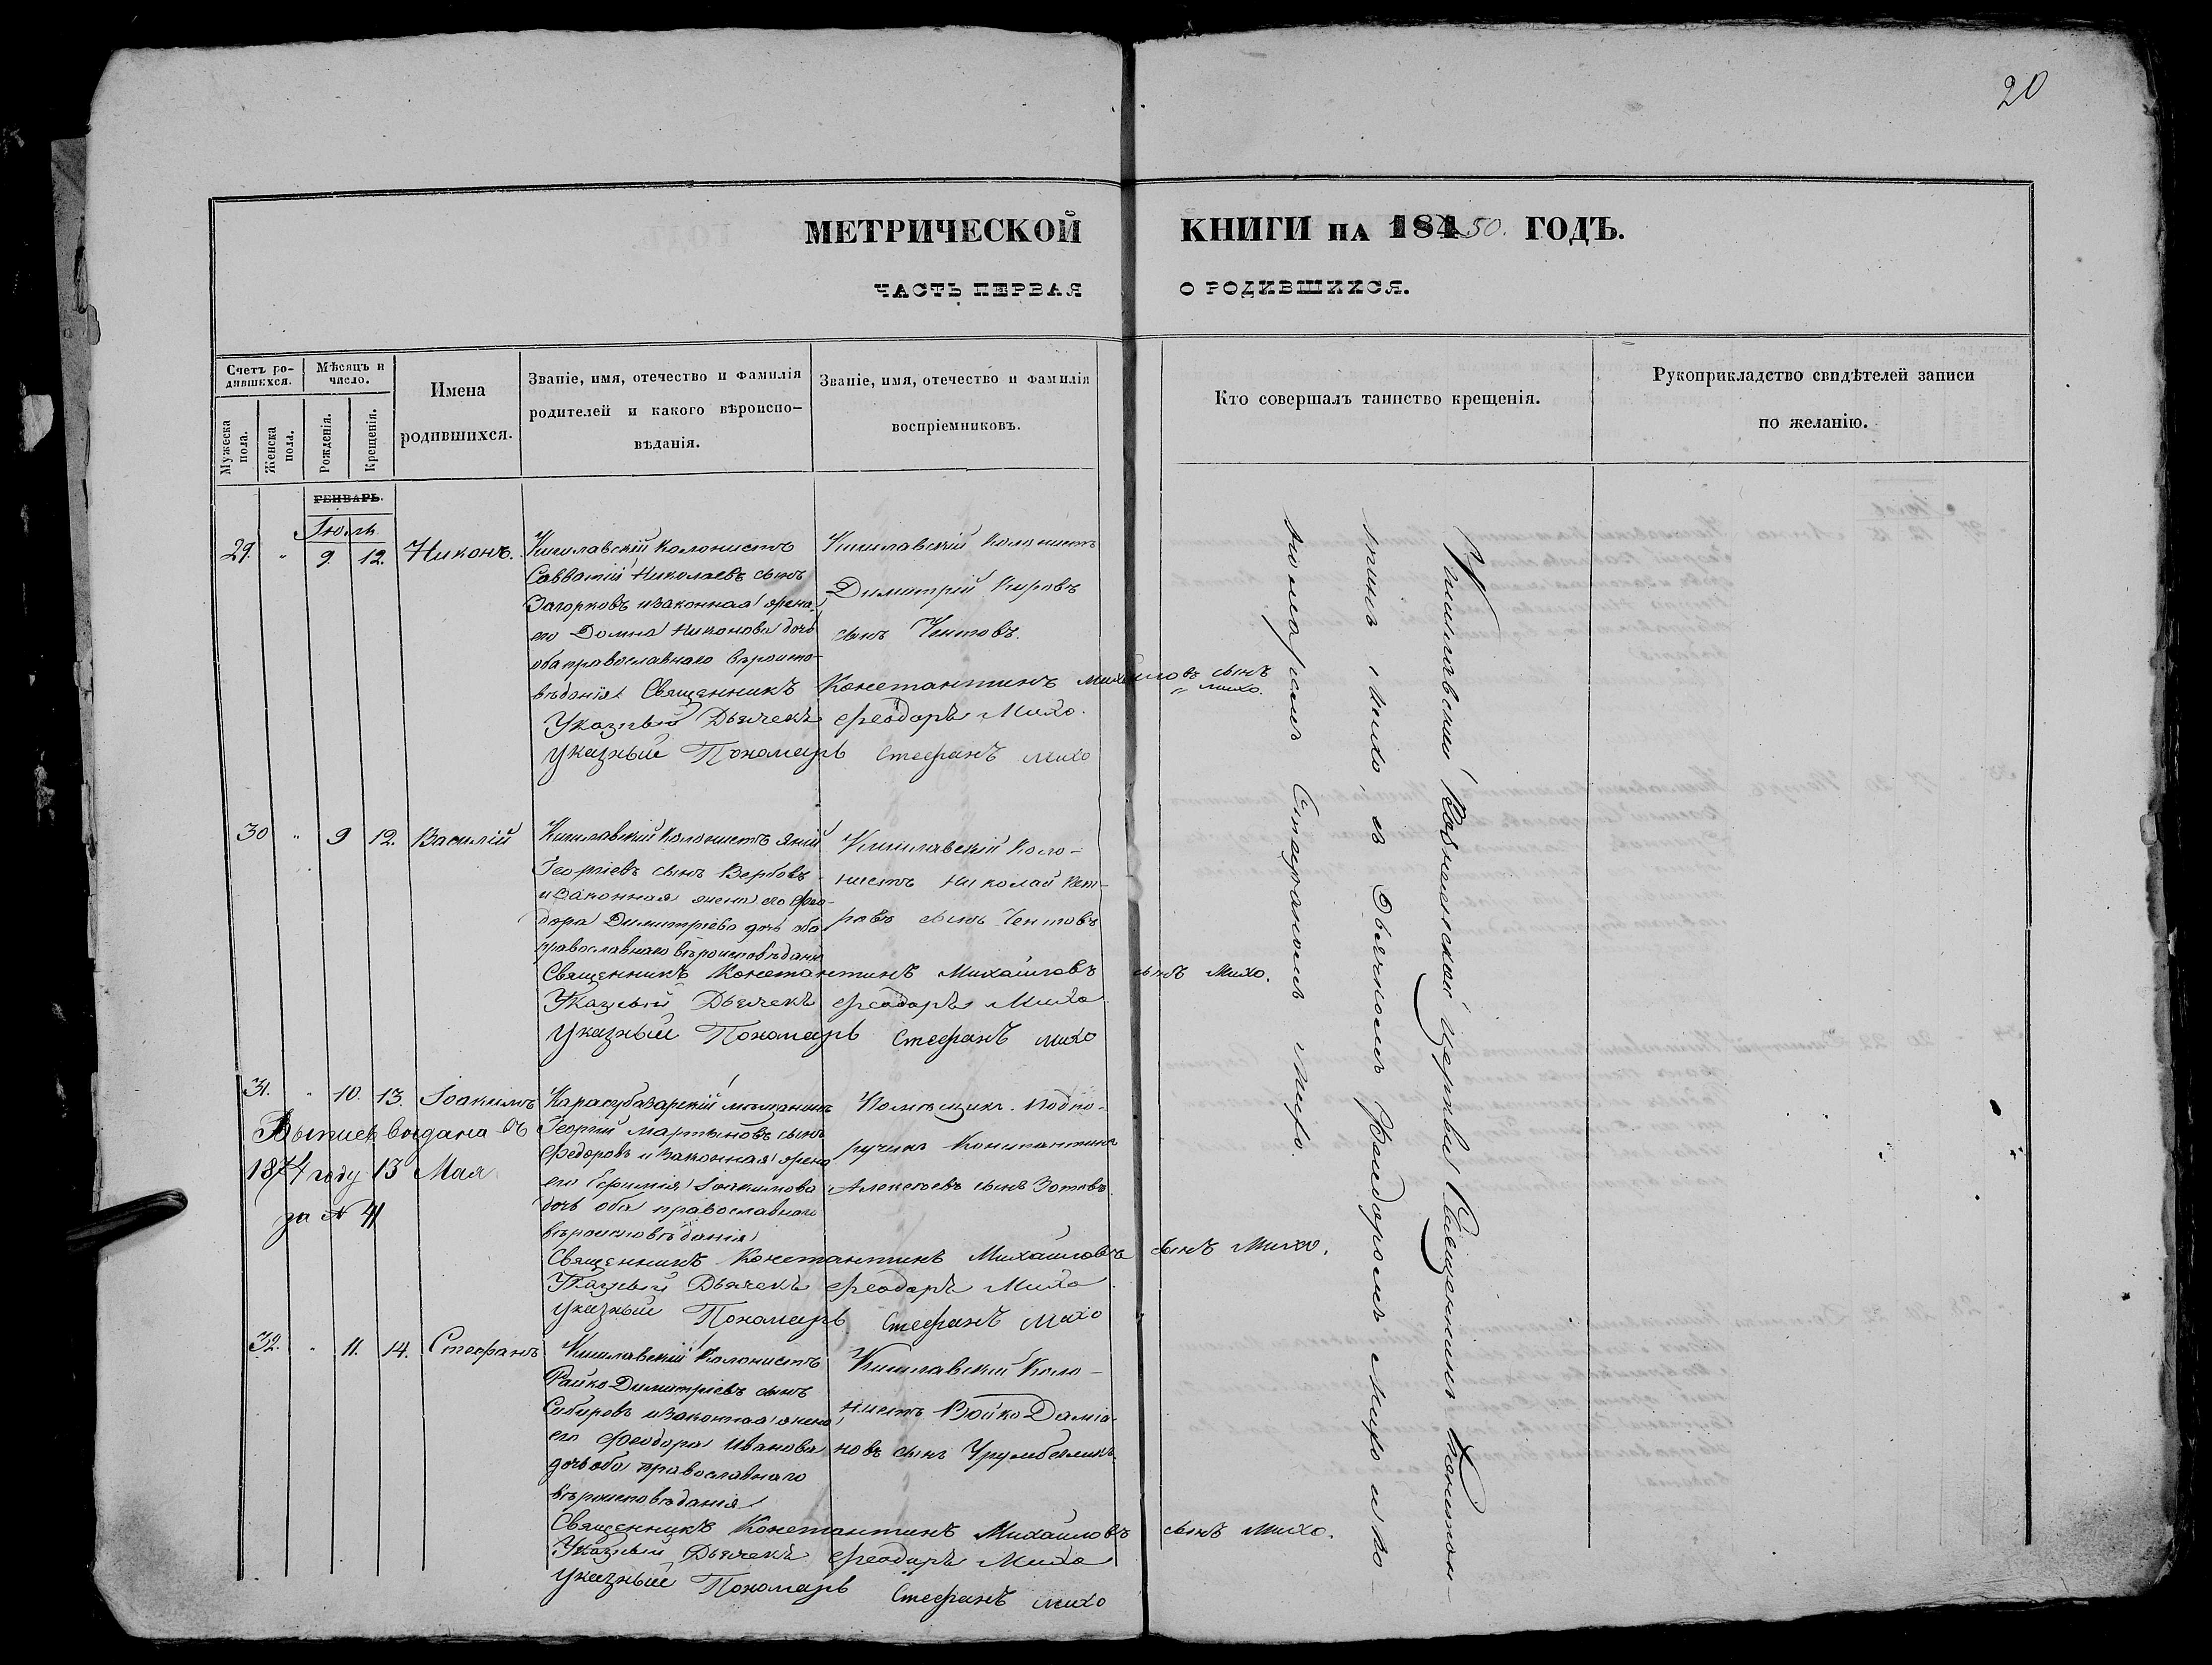 20
МЕТРИЧЕСКОЙ КНИГИ НА 184 50. ГОДЪ.
ЧАСТЬ ПЕРВАЯ О РОДИВШИХСЯ.
Счетъ родившихся.
Мужеска пола.
Женска пола.
Мѣсяцъ и число.
Рожденія.
Крещенія.
Имена родившихся.
Званіе, имя, отечество и фамилія
родителей и какого вѣроиспо-
вѣданія.
Званіе, имя, отечество и фамилія
воспріемниковъ.
Кто совершалъ таинство крещенія.
Рукоприкладство свидѣтелей записи
по желанію.
ГЕНВАРЬ.
Іюль
29. " 9. 12. Никонъ.
Кишлавскій колонистъ
Савватій Николаевъ сынъ
Загорковъ и законная жена
его Домна Никонова дочь
оба православнаго вѣроиспо-
вѣданія
Кишлавскій колонистъ
Димитрій Кировъ
сынъ Чентовъ.
Священникъ Константинъ Михайловъ сынъ
Михо.
Указный Дьячекъ Феодоръ Михо.
Указный Пономарь Стефанъ Михо
30 " 9 12. Василій
Кишлавскій колонистъ Яній
Георгіевъ сынъ Вербовъ
и законная жена его Фео-
дора Димитріева дочь оба
православнаго вѣроисповѣданія
Кишлавскій коло-
нистъ Николай Пет-
ровъ сынъ Чентовъ
Священникъ Константинъ Михайловъ сынъ Михо.
Указный Дьячекъ Феодоръ Михо
Указный Пономарь Стефанъ Михо
31. " 10. 13. Іоакимъ
Выпись выдана въ
1874 году 13 Мая
за № 41
Карасубазарскій мѣщанинъ
Георгій Мартыновъ сынъ
Федоровъ и законная жена
его Іоакимова
дочь оба православнаго
вѣроисповѣданія
Помѣщикъ Подпо-
ручикъ Константинъ
Алексѣевъ сынъ Зотовъ.
Священникъ Константинъ Михайловъ сынъ Михо.
Указный Дьячекъ Феодоръ Михо
Указный Пономарь Стефанъ Михо
32. " 11. 14. Стефанъ
Кишлавскій колонистъ
Райко Димитріевъ сынъ
Сибировъ и законная жена
его Феодора Иванова
дочь оба православнаго
вѣроисповѣданія
Кишлавскій коло-
нистъ Войко Даміа-
новъ сынъ
Священникъ Константинъ Михайловъ сынъ Михо.
Указный Дьячекъ Феодоръ Михо
Указный Пономарь Стефанъ Михо
Кишлавской Вознесенской церкви Священникъ Констан-
тинъ Михо, съ Дьячкомъ Феодоромъ Михо и По-
номаремъ Стефаномъ Михо.